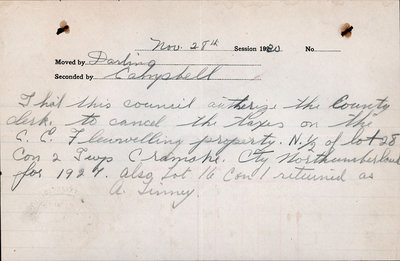 Nov. 28th Session 1930 No.
Moved by Darling
Seconded by Campbell
That this council autherize the County
clerk. to cancel the taxes on the
C. C. Flewwelling property. N.½ of lot 28
Con 2 Twp Cramahe. Cty Northumberland
for 1927. also Lot 16 Con 1 returned as
A. Finney.